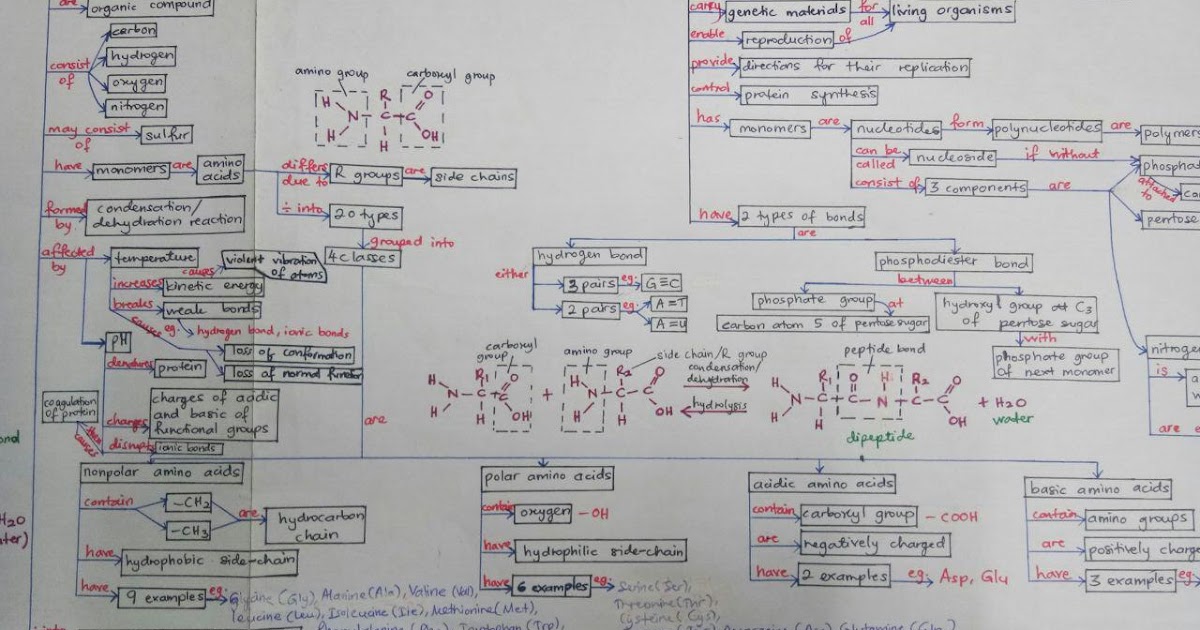 are organic compound
consist of
carbon
hydrogen
oxygen
nitrogen
may consist of sulfur
have monomers are amino acids
differs due to R groups are side chains
÷ into 20 types
grouped into
4 classes
formed by condensation/
dehydration reaction
affected by
temperature
causes violent vibration
of atoms
increases kinetic energy
breaks weak bonds
eg. hydrogen bond, ionic bonds
causes
loss of conformation
loss of normal function
pH
denatures protein
changes charges of acidic
and basic of
functional groups
disrupts ionic bonds
then causes
coagulation
of protein
amino group
carboxyl group
H
N
H
R
C
H
C
O
OH
carry genetic materials for all living organisms
enable reproduction of
provide directions for their replication
control protein synthesis
has monomers are nucleotides form polynucleotides are polymers
can be called nucleoside if without
phosphat
consist of 3 components are
attached to
pentose
have 2 types of bonds
are
hydrogen bond
either
3 pairs eg. G≡C
2 pairs eg. A=T
A=U
phosphodiester bond
between
phosphate group at
carbon atom 5 of pentose sugar
hydroxyl group at C3
of pentose sugar
with
phosphate group
of next monomer
nitrogen
is
are
carboxyl
group
amino group
side chain/R group
condensation/
dehydration
hydrolysis
peptide bond
H N H R1 C H C O OH
+
H N H R2 C H C O OH
H N H R1 C H C O H N R2 C H C O OH
+ H2O
water
dipeptide
are
nonpolar amino acids
contain -CH2
-CH3
are hydrocarbon
chain
have hydrophobic side-chain
have 9 examples eg: Glycine (Gly), Alanine (Ala), Valine (Val),
Leucine (Leu), Isoleucine (Ile), Methionine (Met),
polar amino acids
contain oxygen -OH
have hydrophilic side-chain
have 6 examples eg: Serine (Ser),
Threonine (Thr),
Cysteine (Cys),
acidic amino acids
contain carboxyl group -COOH
are negatively charged
have 2 examples eg: Asp, Glu
basic amino acids
contain amino groups
are positively charge
have 3 examples eg:
H2O
ter)
ond